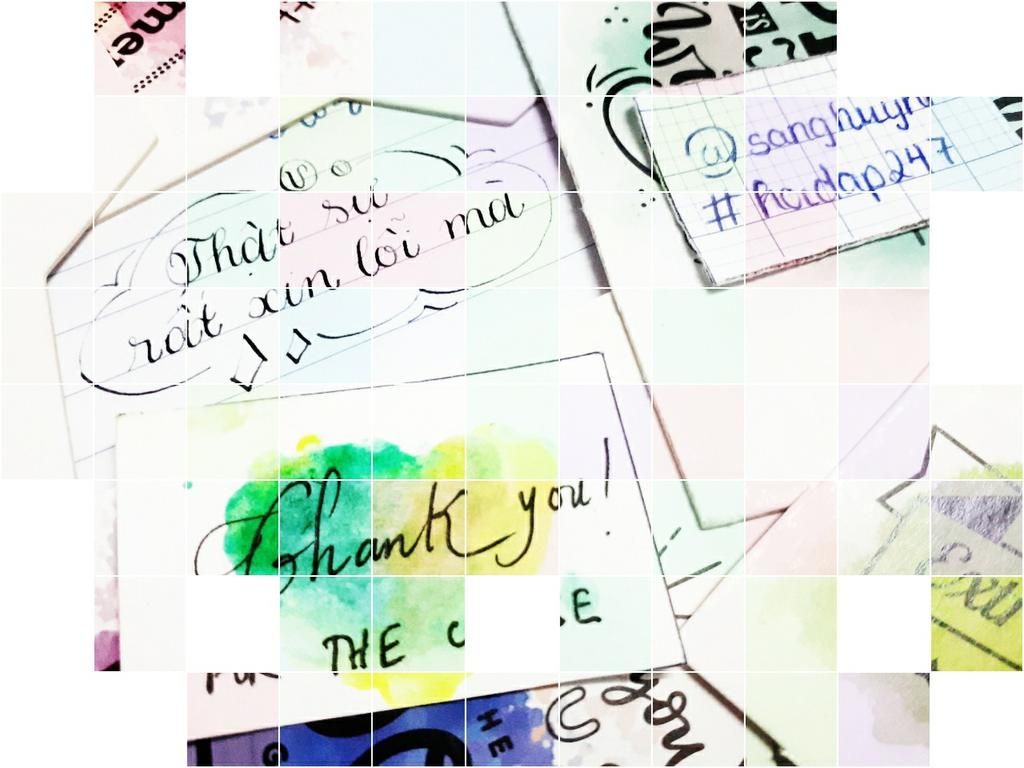 me
is
@sanghuynh
#hoidap247
Thật sự
rất xin lỗi mà
Thank you!
THE
you
HE